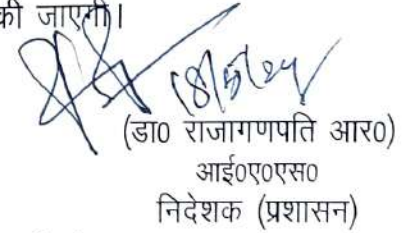 की जाएगी।
18/5/24
(डा० राजागणपति आर०)
आई०ए०एस०
निदेशक (प्रशासन)